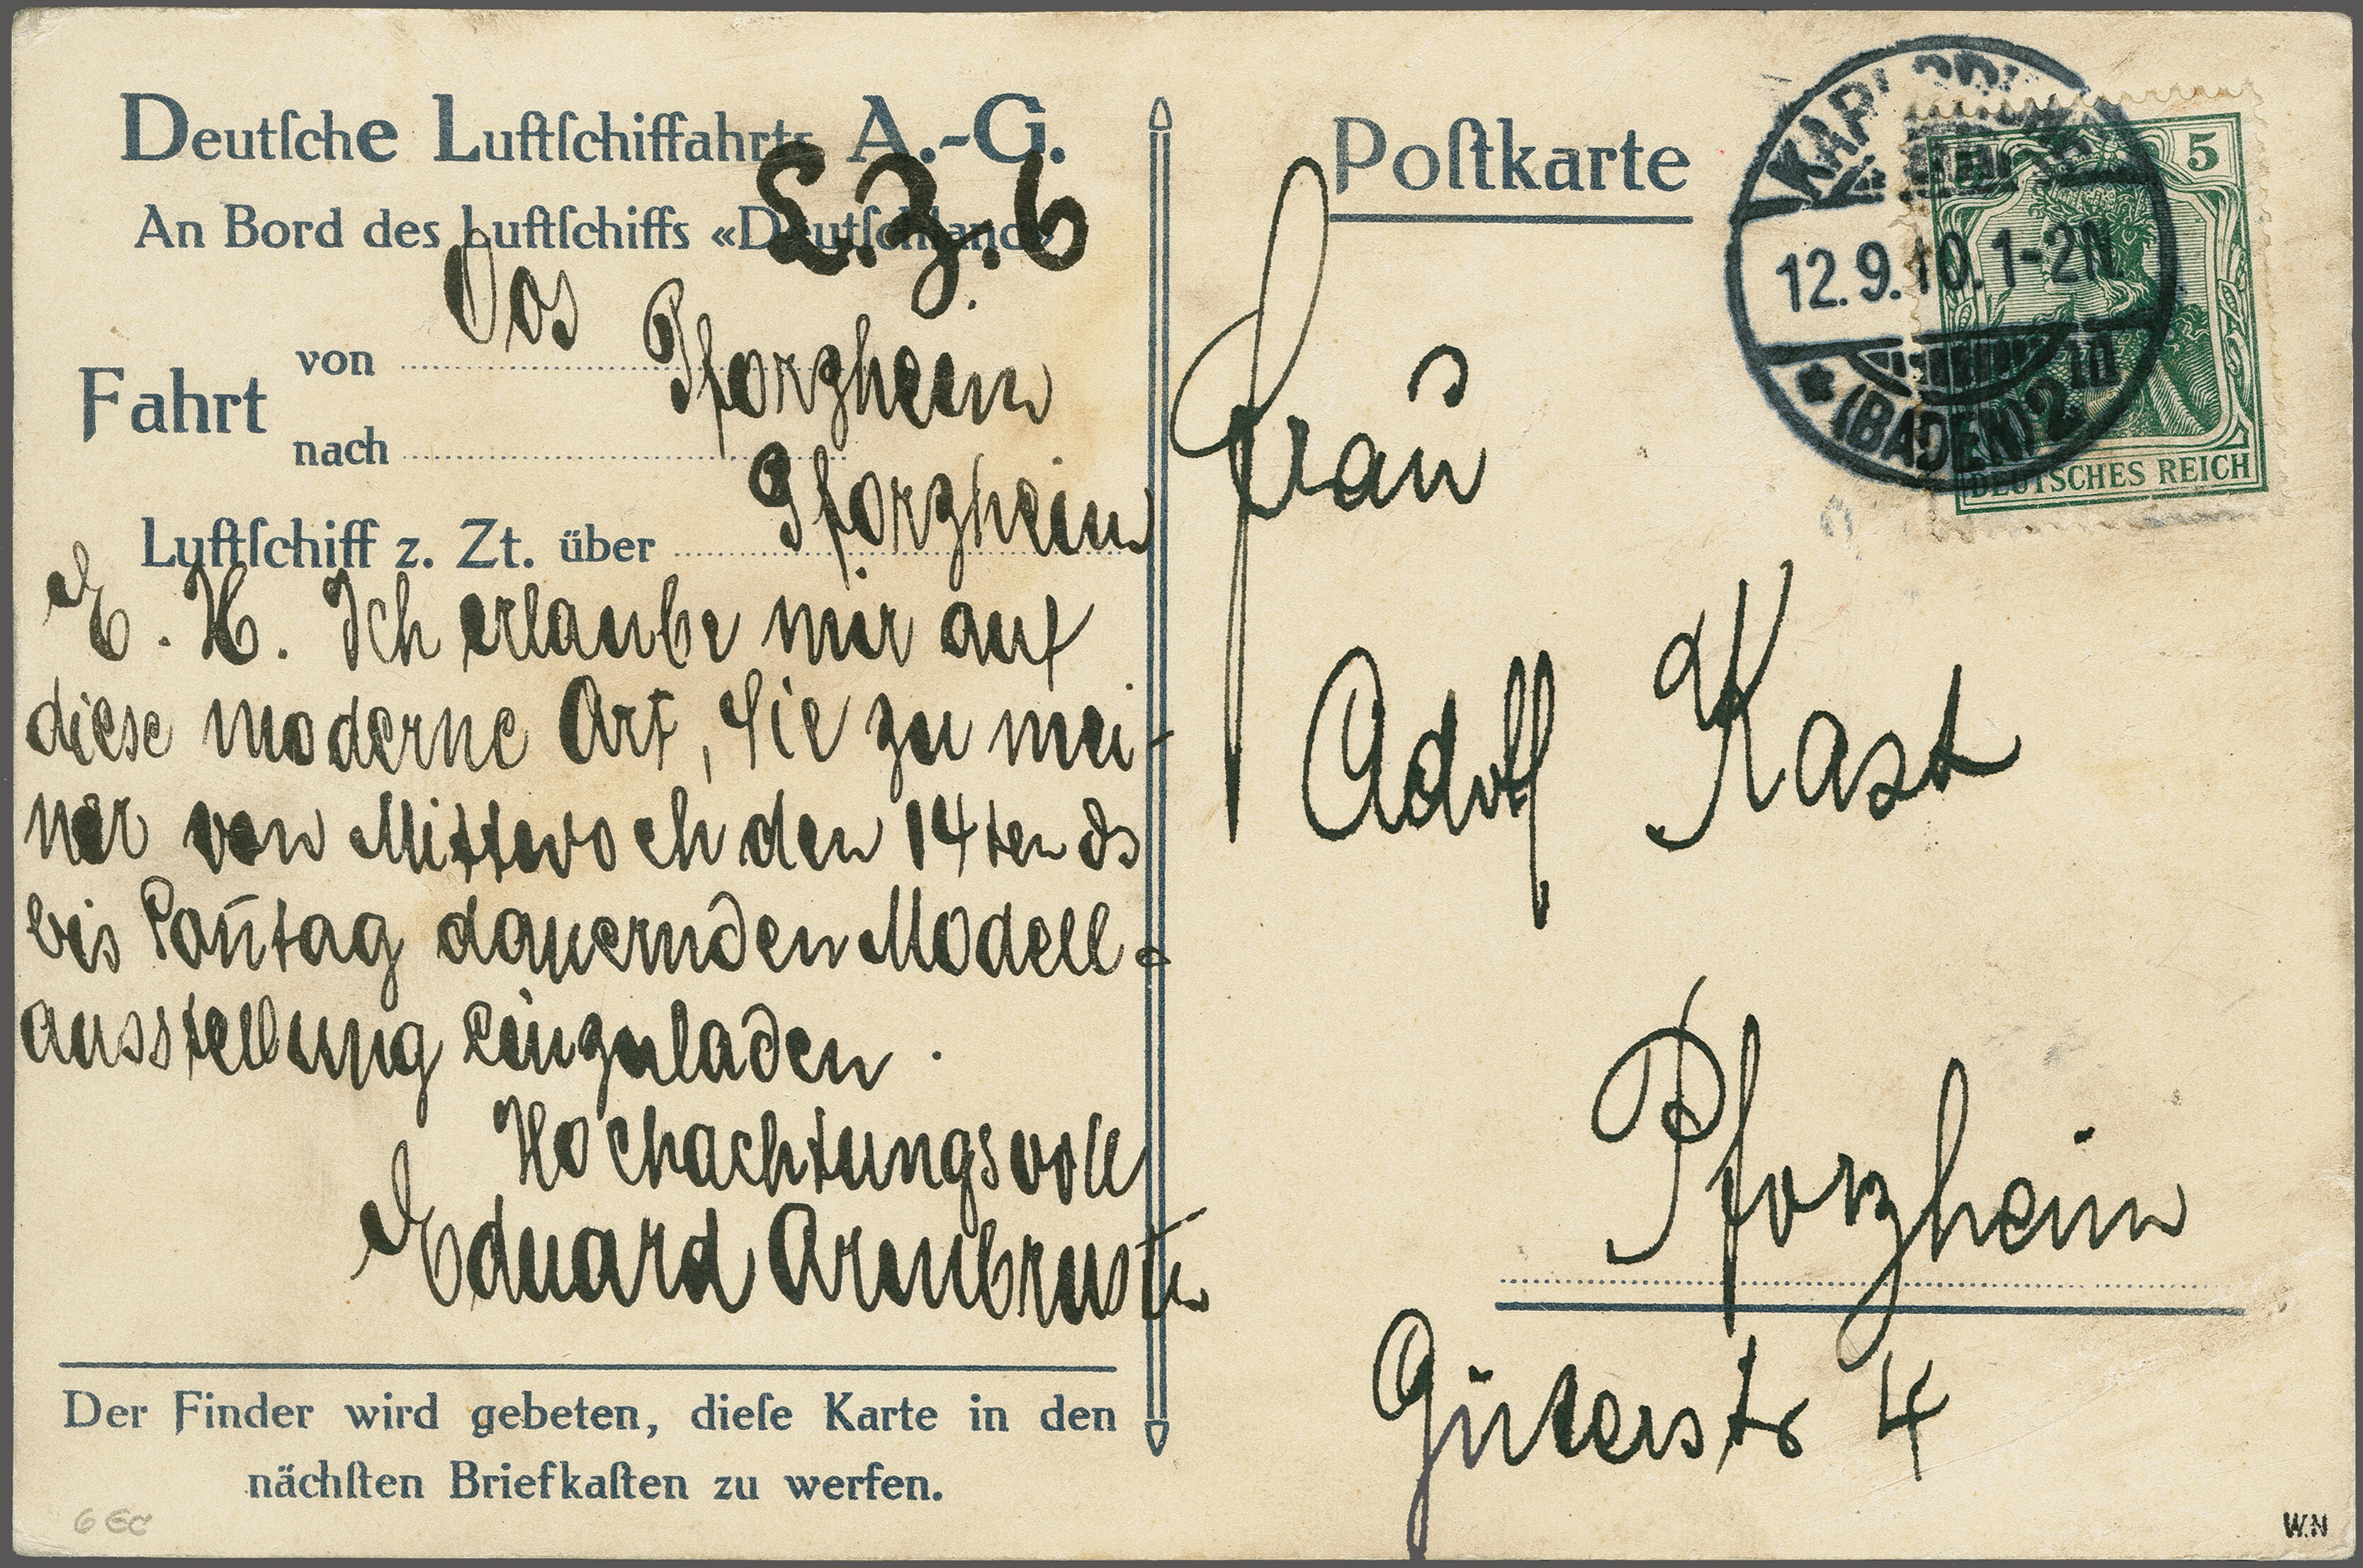 Deutſche Luftſchiffahrts A.-G.
An Bord des Luftſchiffs «Deutſchland»
L.Z.6
Fahrt von Oos
nach Pforzheim
Luftſchiff z. Zt. über Pforzheim
E. H. Ich erlaube mir auf
diese moderne Art, Sie zu mei-
ner von Mittwoch den 14ten ds
bis Son̄tag dauernden Modell-
ausstellung einzuladen.
Hochachtungsvoll
Eduard Armbruster
Der Finder wird gebeten, dieſe Karte in den
nächſten Briefkaſten zu werfen.
6 EC
Poſtkarte
12.9.10.1-2N.
* (BADEN) 2
5
DEUTSCHES REICH
Frau
Adolf Kast
Pforzheim
Güterstr 4
W.N